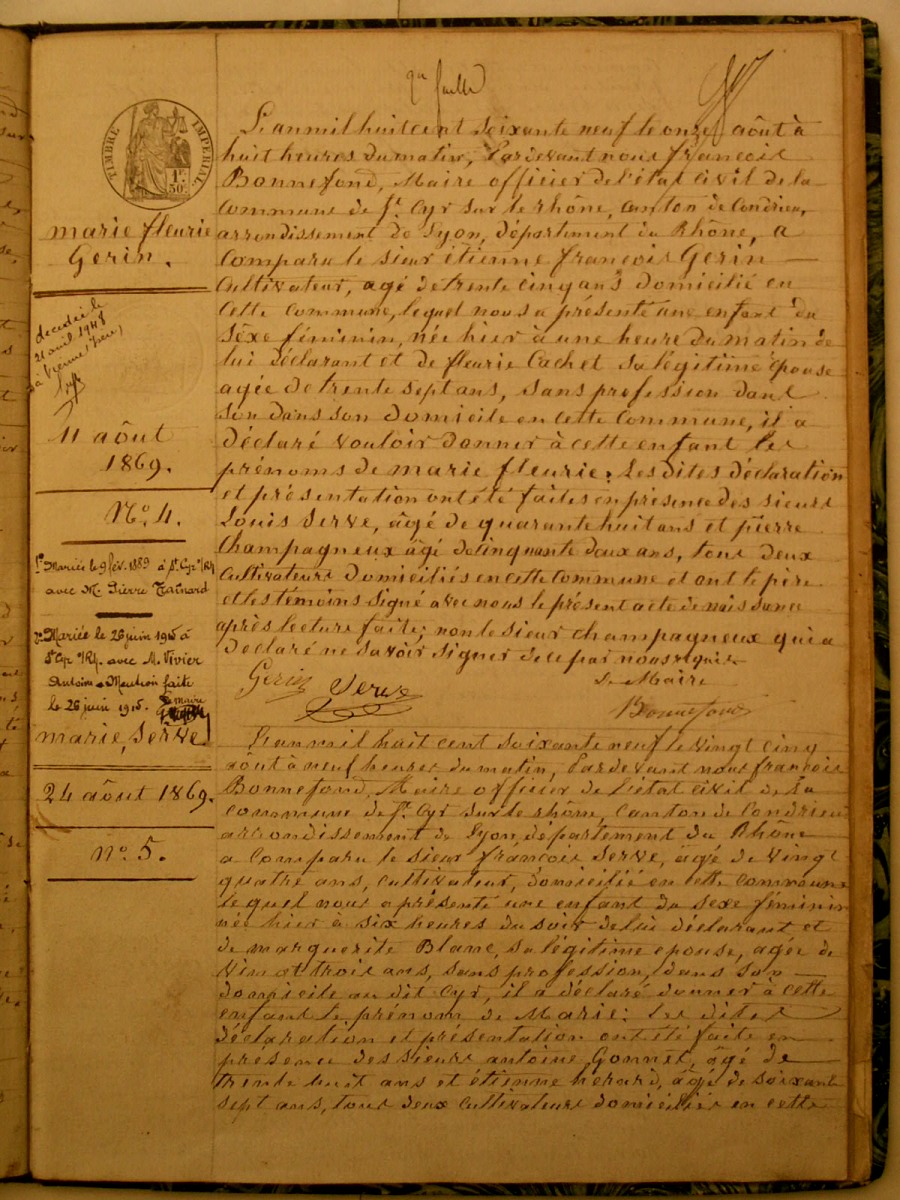 2me feuille
TIMBRE IMPERIAL
1 F. 50 c.
marie fleurie
Gerin.
décédée le
21 avril 1948
à Vienne (Isère)
11 août
1869.
No. 4.
1° Mariée le 9 fév. 1889 à St. Cyr s/Rh.
avec M. Pierre
2° Mariée le 26 juin 1915 à
St Cyr s/Rh. avec M. Vivier
Antoine Mention faite
le 26 juin 1915. Le maire
L'an mil huit cent soixante neuf le onze août à
huit heures du matin, Pardevant nous françois
Bonnefond, Maire officier de l'état civil de la
commune de St. Cyr sur le rhône, canton de Condrieu,
arrondissement de Lyon, département du Rhône, a
comparu le sieur étienne françois Gerin
Cultivateur, agé de trente cinq ans domicilié en
cette commune, lequel nous a présenté une enfant du
séxe féminin, née hier à une heure du matin de
lui déclarant et de fleurie Cachet sa légitime épouse
agée de trente sept ans, sans profession dant
son dans son domicile en cette commune, il a
déclaré vouloir donner à cette enfant les
prénoms de marie fleurie; Les dites déclaration
et présentation ont été faites en présence des sieurs
Louis Serve, âgé de quarante huit ans et pierre
Champagneux âgé de cinquante deux ans, tous deux
cultivateurs domiciliés en cette commune et ont le père
et les témoins signé avec nous le présent acte de naissance
après lecture faite; non le sieur champagneux qui a
déclaré ne savoir signer de ce par nous requis
Gerin Serve Le Maire
Bonnefond
marie, Serve
24 août 1869.
No. 5.
L'an mil huit cent soixante neuf le vingt cinq
août à neuf heures du matin, Pardevant nous françois
Bonnefond, Maire officier de l'état civil de la
commune de St. Cyr sur le rhône, Canton de Condrieu
arrondissement de Lyon, département du Rhône
a comparu le sieur françois Serve, âgé de vingt
quatre ans, cultivateur, domicilié en cette commune
lequel nous a présenté une enfant du sexe féminin
née hier à six heures du soir de lui déclarant et
de marguerite Blanc, sa légitime epouse, agée de
vingt trois ans, sans profession, dans son
domicile au dit Cyr, il a déclaré donner à cette
enfant le prénom de Marie; Les dites
déclaration et présentation ont été faite en
présence des sieurs antoine Gonnet, âgé de
trente huit ans et étienne herard, âgé de soixante
sept ans, tous deux cultivateurs domiciliés en cette